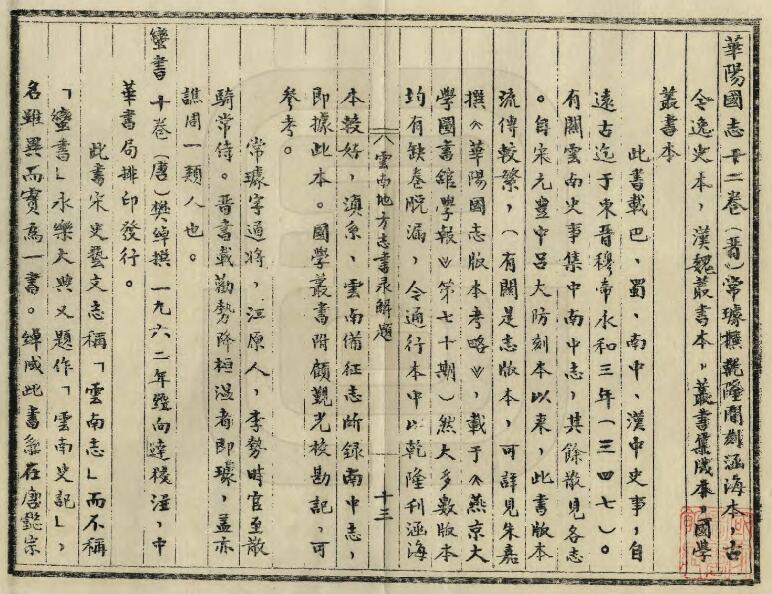 華陽國志十二卷（晋）常璩撰乾隆間刻涵海本，古
今逸史本，漢魏叢書本，叢書集成本，國学
叢書本
此書載巴、蜀、南中、漢中史事，自
遠古迄于東晋穆帝永和三年（三四七）。
有關雲南史事集中南中志，其餘散見各志
。自宋元豊中呂大防刻本以来，此書版本
流傳較繁，（有關是志版本，可詳見朱嘉
撰《華陽國志版本考略》，載于《燕京大
學圖書舘學報》第七十期）然大多數版本
均有缺卷脱漏，今通行本中以乾隆刊涵海
雲南地方志書录解題
十三
本較好，滇系，雲南備征志所録南中志，
即據此本。國学叢書附顧觀光校勘記，可
参考。
常璩字通將，江原人，李勢時官至散
騎常侍。晋書載勸勢降桓温者即璩，盖亦
譙周一類人也。
蠻書　十卷（唐）樊綽撰　一九六二年向達校注，中
華書局排印發行。
此書宋史藝文志稱「雲南志」而不稱
「蠻書」永樂大典又題作「雲南史記」，
名雖異而實為一書。綽成此書當在唐懿宗